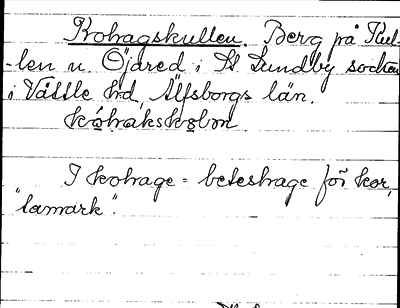 Kohagskullen. Berg på Kul-
-len n. Öjared i St Lundby socken
i Vättle hd, Älfsborgs län.
I kohage = beteshage för kor,
"lamark".